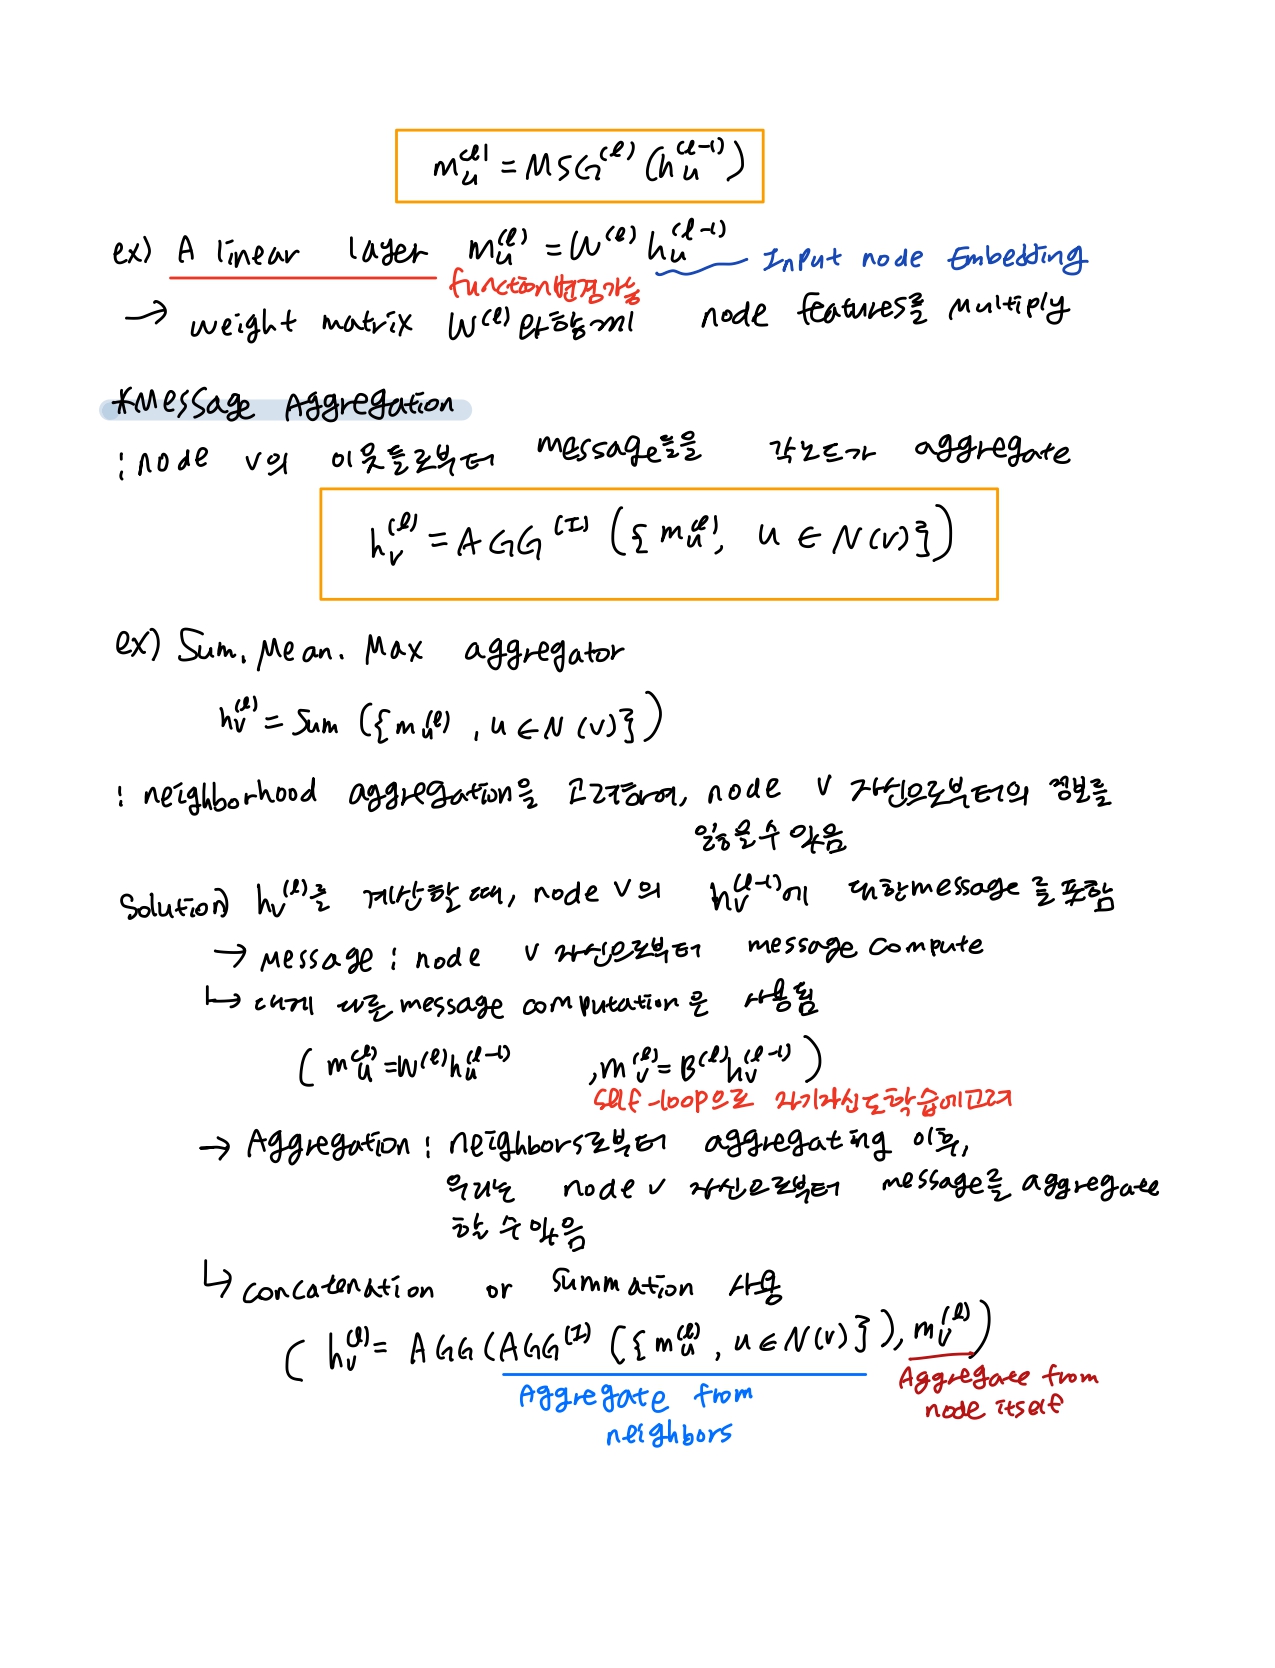 m_u^(l) = MSG^(l) (h_u^(l-1))
ex) A linear layer m_u^(l) = W^(l) h_u^(l-1) Input node Embedding
function변경가능
→ weight matrix W^(l)와 함께 node features를 Multiply
*Message Aggregation
: node v의 이웃들로부터 message들을 각 노드가 aggregate
h_v^(l) = AGG^(I) ({m_u^(l), u ∈ N(v)})
ex) Sum. Mean. Max aggregator
h_v^(l) = Sum ({m_u^(l), u ∈ N(v)})
: neighborhood aggregation을 고려하여, node v 자신으로부터의 정보를
잃을 수 있음
Solution) h_v^(l)를 계산할 때, node v의 h_v^(l-1)에 대한 message를 포함
→ message : node v 자신으로부터 message compute
↳ 대게 다른 message computation은 사용됨
( m_u^(l) = W^(l) h_u^(l-1) , m_v^(l) = B^(l) h_v^(l-1) )
self-loop으로 자기자신도 학습에 고려
→ Aggregation : neighbors로부터 aggregating 이후,
우리는 node v 자신으로부터 message를 aggregate
할 수 있음
↳ concatenation or summation 사용
( h_v^(l) = AGG (AGG^(I) ({m_u^(l), u ∈ N(v)}), m_v^(l) )
Aggregate from neighbors
Aggregate from node itself